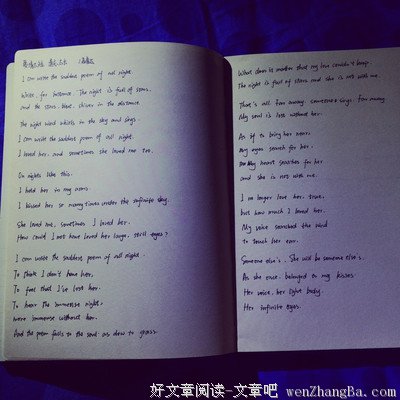 I can write the saddest poem of all night.
Write, for instance: The night is full of stars,
and the stars, blue, shiver in the distance.
The night wind whirls in the sky and sings.
I can write the saddest poem of all night.
I loved her, and sometimes she loved me too.
On nights like this,
I held her in my arms.
I kissed her so many times under the infinite sky.
She loved me, sometimes I loved her.
How could I not have loved her large, still eyes?
I can write the saddest poem of all night.
To think I don't have her.
To feel that I've lost her.
To hear the immense night,
more immense without her.
And the poem falls to the soul as dew to grass.
What does it matter that my love couldn't keep.
The night is full of stars and she is not with me.
That's all. Far away, someone sings. Far away.
My soul is lost without her.
As if to bring her near,
my eyes search for her
My heart searches for her
and she is not with me.
I no longer love her, true,
but how much I loved her.
My voice searched the wind
to touch her ear.
Someone else's. She will be someone else's.
As she once belonged to my kisses.
Her voice, her light body.
Her infinite eyes.
好文章阅读-文章吧 wenZhangBa.com